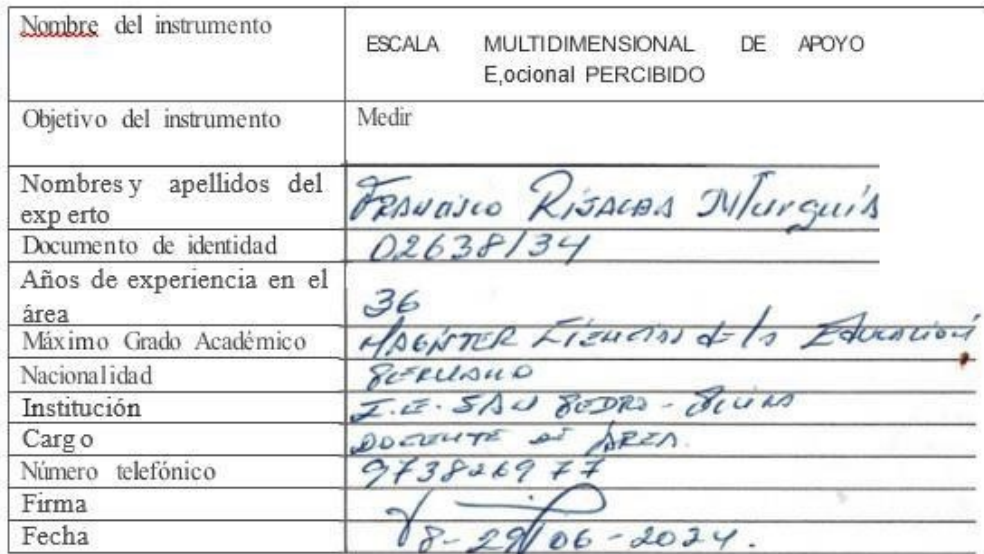 Nombre del instrumento
ESCALA MULTIDIMENSIONAL DE APOYO
E,ocional PERCIBIDO
Objetivo del instrumento
Medir
Nombres y apellidos del
exp erto
Francisco Risalba Murguía
Documento de identidad
02638134
Años de experiencia en el
área
36
Máximo Grado Académico
MAGÍSTER CIENCIAS de la Educación
Nacionalidad
PERUANO
Institución
I.E. SAN PEDRO - PIURA
Carg o
DOCENTE DE AREA.
Número telefónico
973826977
Firma
Fecha
29/06-2024.